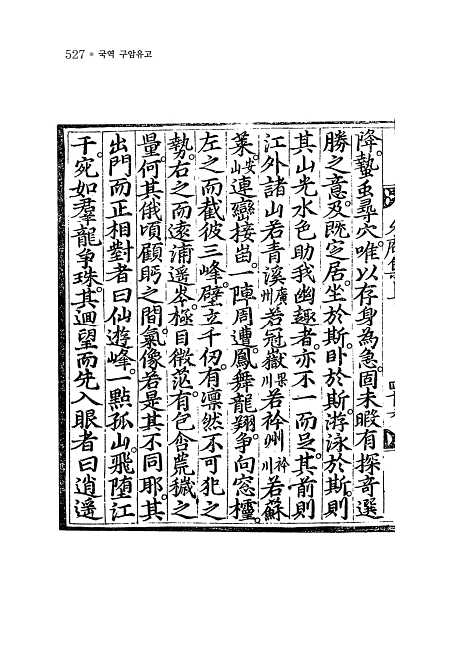 527 ● 국역 구암유고
降。蟄虫尋穴。唯以存身為急。固未暇有探奇選
勝之意。及既定居。坐於斯。卧於斯。游泳於斯。則
其山光水色助我幽趣者。亦不一而足。其前則
江外諸山若青溪廣州若冠嶽果川若衿州衿川若蘇
萊安山連巒接岫。一陣周遭。鳳舞龍翔。争向窓櫺。
左之而截彼三峰。壁立千仞。有凛然不可犯之
勢。右之而遠浦遥岑。極目微茫。有包含荒穢之
量。何其俄頃顧眄之間。氣像若是其不同耶。其
出門而正相對者曰仙遊峰。一點孤山。飛堕江
干。宛如羣龍争珠。其迴望而先入眼者曰逍遥